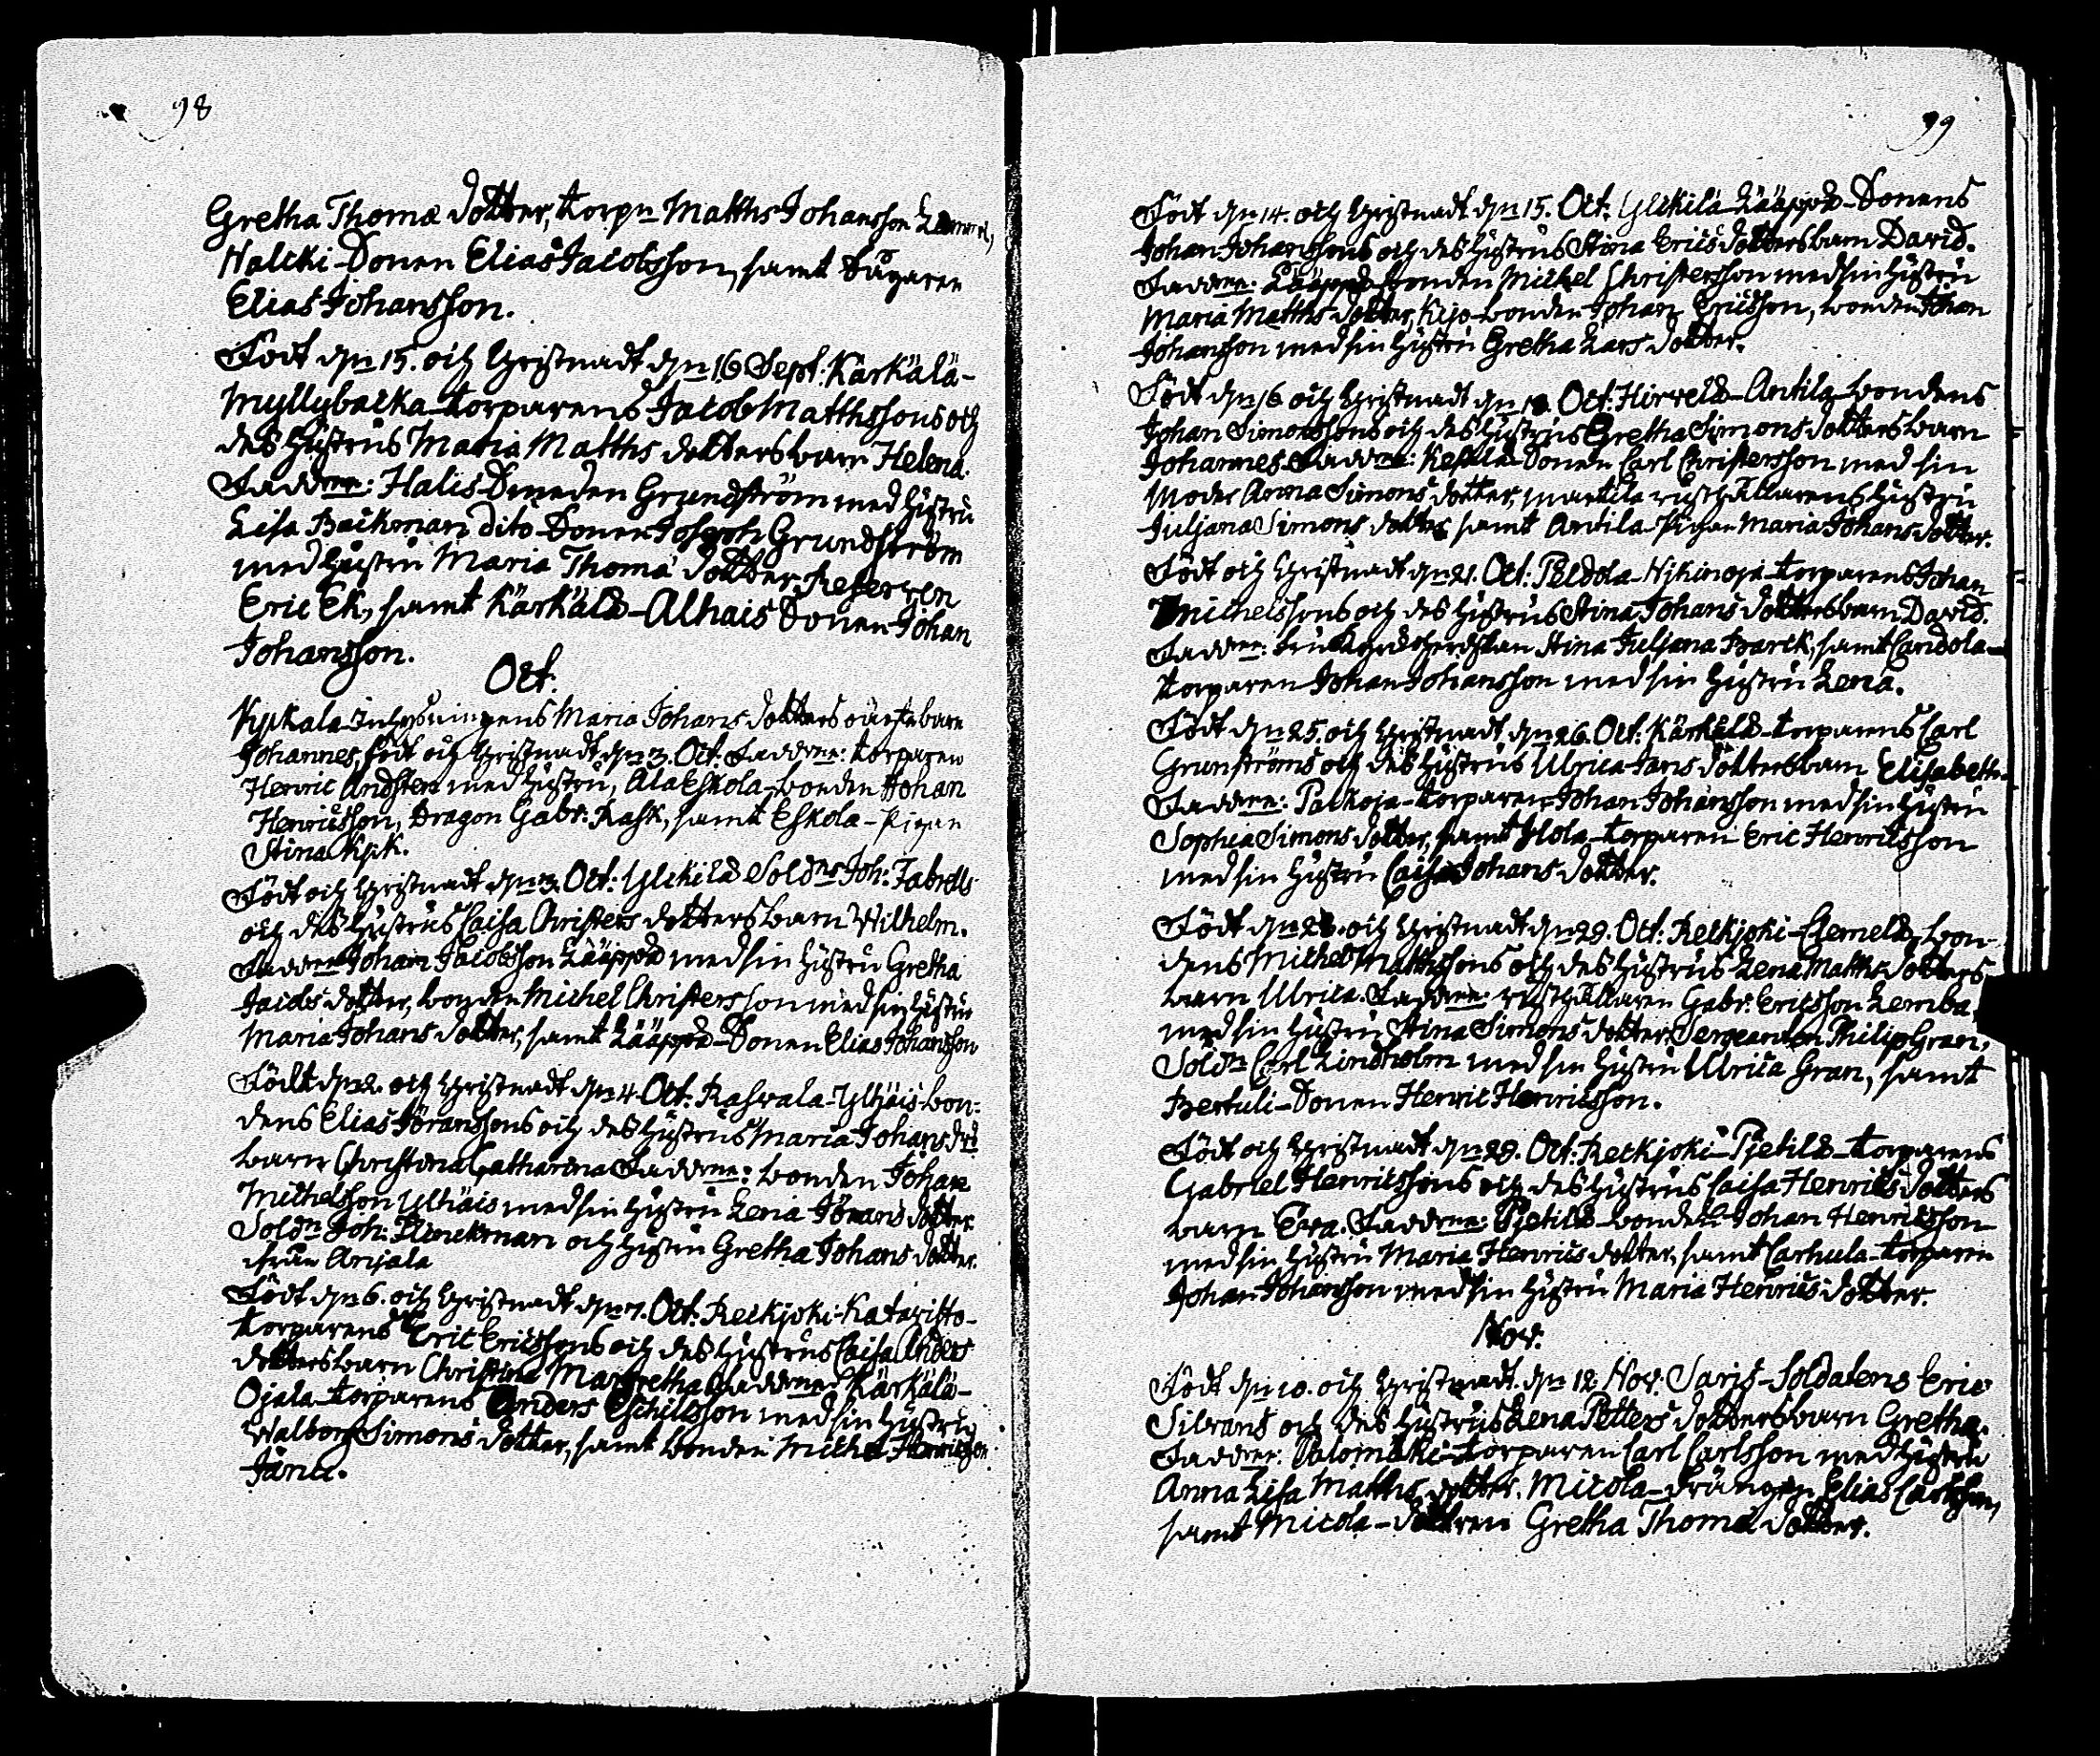 98
Gretha Thomæ dotter, torpn Matths Johansson
Nalcki-Sonen Elias Jacobsson, samt Sågaren
Elias Johansson.
Födt dn 15. och Christnadt dn 16 Sept: Kärkälä-
Myllybacka-torparens Jacob Matthssons och
des hustrus Maria Matths dotters barn Helena.
Faddrne: Halis Smeden Grundström med hustru
Lisa Backman dito Sonen Joseph Grundström
med hustru Maria Thomæ dotter, Reserven
Eric Ek, samt Kärkälä-Alhais Sonen Johan
Johansson.
Oct:
Kyrkala-Inhysningens Maria Johans dotters oäkta barn
Johannes, födt och Christnadt dn 3. Oct: Faddrne: torparen
Henric Andsten med hustru, Ala Eskola-bonden Johan
Henricsson, Dragon Gabr: Rask, samt Eskola-pigan
Stina
Födt och Christnadt dn 3. Oct: Ylikilä Soldns Joh:
och des hustrus Caisa Christers dotters barn Wilhelm.
Faddrne Johan Jacobsson Lääppä med sin hustru Gretha
Jacobs dotter, bonden Michel Christersson med sin hustru
Maria Johans dotter, samt Lääppä-Sonen Elias Johansson
Födt dn 2. och Christnadt dn 4. Oct: Rasvala-Ylhäis-bon-
dens Elias Göranssons och des hustrus Maria Johans drs
barn Christina Catharina Faddrne: bonden Johan
Michelsson Ylhäis med sin hustru Lena Görans dotter.
Soldn Joh: Flinckman och hustru Gretha Johans dotter.
ifrån Anjala
Födt dn 6. och Christnadt dn 7. Oct: Reckjoki-Katavisto-
torparens Eric Ericssons och des hustrus Caisa Anders
dotters barn Christina Margretha Faddrne: Kärkälä-
Ojala-torparens Anders Eschilsson med sin hustru
Walborg Simons dotter, samt bonden Michel Henricsson
99
Födt dn 14. och Christnadt dn 15. Oct: Ylikilä-Lääppä-Sonens
Johan Johanssons och des hustrus Stina Erics dotters barn David.
Faddrne: Lääppä-bonden Michel Christersson med sin hustru
Maria Matths dotter, Kijo-bonden Johan Ericsson, bonden Johan
Johansson med sin hustru Gretha Lars dotter.
Födt dn 16 och Christnadt dn Oct: Hirvelä-Antila-bondens
Johan Simonssons och des hustrus Gretha Simons dotters barn
Johannes. Faddrne: Keskila-Sonen Carl Christersson med sin
Moder Anna Simons dotter, Martila rusthållarens hustru
Juljana Simons dotter samt Antila-pigan Maria Johans dotter.
Födt och Christnadt dn 21. Oct: Peldola-Nikinoja-torparens Johan
Michelssons och des hustrus Stina Johans dotters barn David.
Faddrne: fru Stina Juljana Barck, samt Candola-
torparen Johan Johansson med sin hustru Lena.
Födt dn 25. och Christnadt dn 26. Oct: Kärkälä-torparens Carl
Grunströms och des hustrus Ulrica Jans dotters barn Elisabeth.
Faddrne: Packoja-torparen Johan Johansson med sin hustru
Sophia Simons dotter, samt Ylola-torparen Eric Henricsson
med sin hustru Caisa Johans dotter.
Födt dn 28. och Christnadt dn 29. Oct: Reckjoki-Clemelä-bon-
dens Michel Matthssons och des hustrus Lena Matths dotters
barn Ulrica. Faddrne: rusthållaren Gabr: Ericsson Lemba,
med sin hustru Stina Simons dotter, Sergeanten Philip Gran,
Soldn Carl Lindholm med sin hustru Ulrica Gran, samt
Bertuli-Sonen Henric Henricsson.
Födt och Christnadt dn 29. Oct: Reckjoki-Pjetilä-torparens
Gabriel Henricssons och des hustrus Caisa Henrics dotters
barn Eva. Faddrne: Pjetilä-bonden Johan Henricsson
med sin hustru Maria Henrics dotter, samt Carhula-torparen
Johan Johansson med sin hustru Maria Henrics dotter.
Nov:
Födt dn 10. och Christnadt dn 12 Nov: Sarjs-Soldatens Eric
Silvans och des hustrus Lena Petters dotters barn Gretha.
Faddrne: Salomäki-torparen Carl Carlsson med hustru
Anna Lisa Matths dotter. Micola-drängen Elias Carlsson,
samt Micola-dottren Gretha Thomæ dotter.